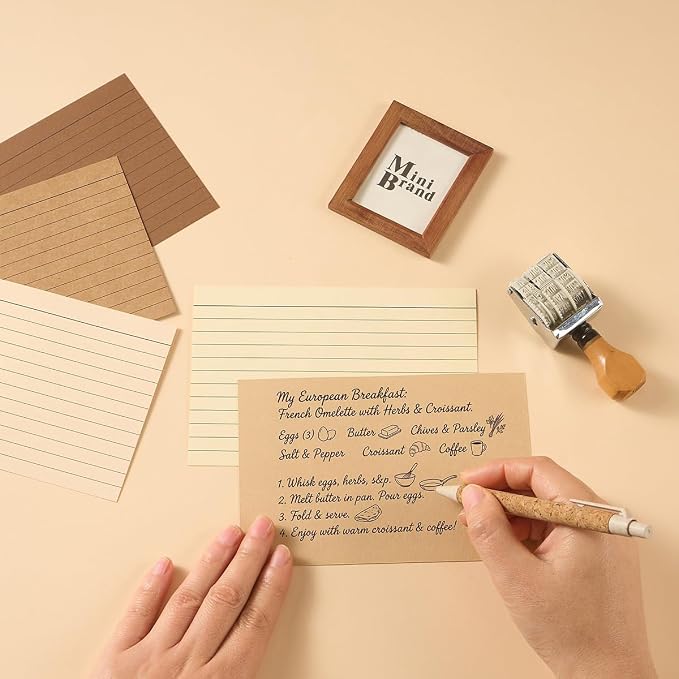 Mini
Brand
My European Breakfast:
French Omelette with Herbs & Croissant.
Eggs (3) Butter Chives & Parsley
Salt & Pepper Croissant Coffee
1. Whisk eggs, herbs, s&p.
2. Melt butter in pan. Pour eggs.
3. Fold & serve.
4. Enjoy with warm croissant & coffee!